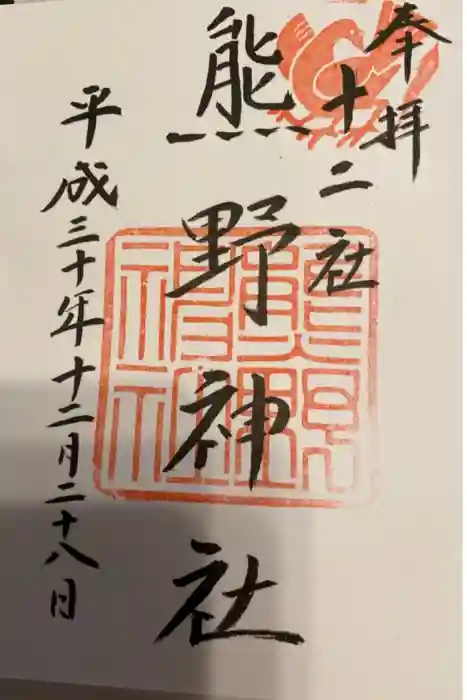 奉拝
十二社
熊野神社
平成三十年十二月二十八日